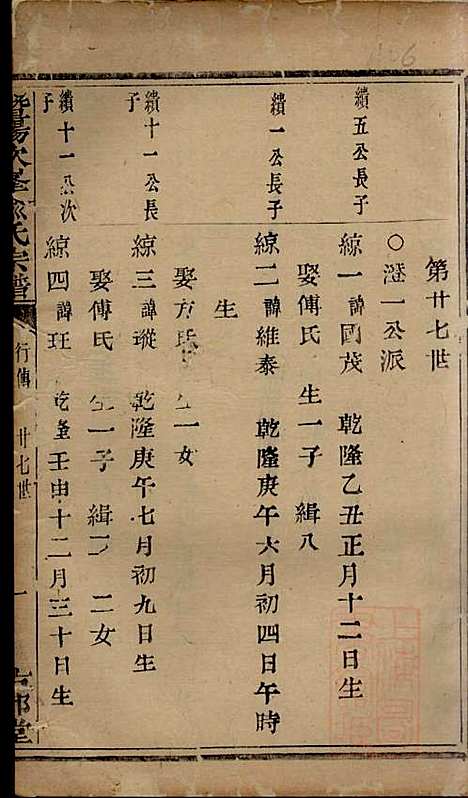 第廿七世
○澄一公派
續五公長子
綜一 諱國茂 乾隆乙丑正月十二日生
娶傅氏 生一子 緝八
續一公長子
綜二 諱維泰 乾隆庚午六月初四日午時
生
娶方氏 生一女
續十一公長
子
綜三 諱瑽 乾隆庚午七月初九日生
娶傅氏 生一子 緝 二女
續十一公次
子
綜四 諱玨 乾隆壬申十二月三十日生
暨陽次峯俞氏宗譜
行傳 廿七世
一